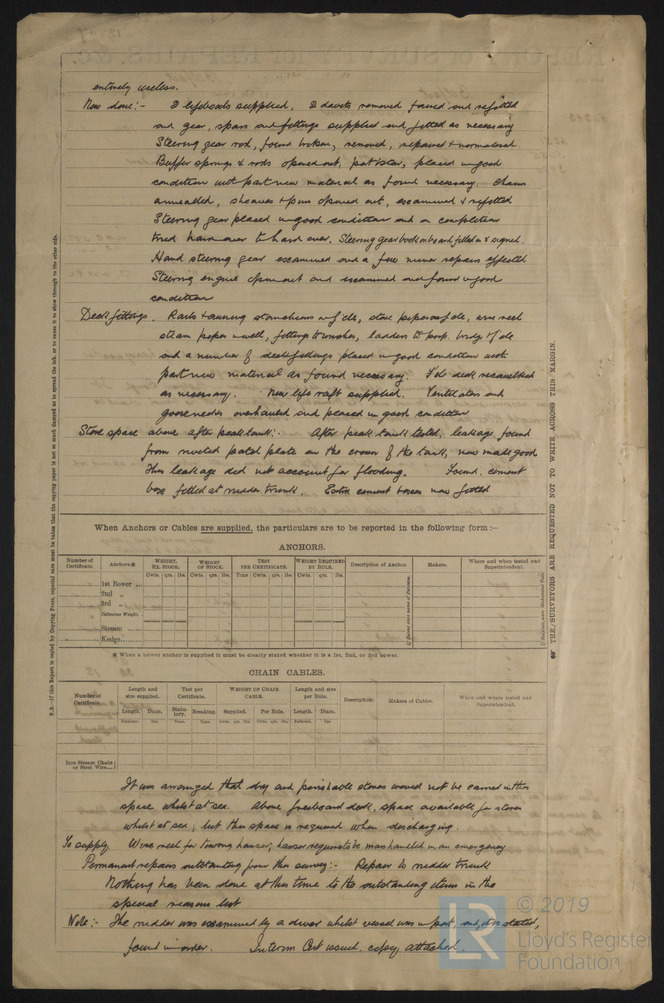 entirely useless.
Now done:- 2 lifeboats supplied, 2 davits removed faired and refitted
and gear, spars and fittings supplied and fitted as necessary
Steering gear rod, found broken, removed, repaired & normalised
Buffer springs & rods opened out, placed in good
condition with part new material as found necessary. Chains
annealled, sheaves & pins opened out, examined & refitted
Steering gear placed in good condition and on completion
tried hard over to hard over. Steering gear book on board filled in & signed.
Hand steering gear examined and a few minor repairs effected
Steering engine opened out and examined and found in good
condition
Deck fittings. Rails & awning stanchions, wire reel
steam pipes in well, fittings to winches, ladders to poop, bridge & f'cle
and a number of deck fittings placed in good condition with
part new material as found necessary. deck recaulked
as necessary. New life raft supplied. Ventilators and
goosenecks overhauled and placed in good condition
Store space above after peak tank:- After peak tank tested, leakage found
from riveted plate on the crown of the tank, now made good
This leakage did not account for flooding. Found cement
box fitted at rudder trunk. Extra cement boxes now fitted
When Anchors or Cables are supplied, the particulars are to be reported in the following form :—
ANCHORS.
Number of Certificate. Anchors.* WEIGHT, EX. STOCK. WEIGHT OF STOCK. TEST PER CERTIFICATE. WEIGHT REQUIRED BY RULE. Description of Anchor. Makers. Where and when tested and Superintendent.
Cwts. qrs. lbs. Cwts. qrs. lbs. Tons Cwts. qrs. lbs. Cwts. qrs. lbs.
1st Bower
2nd „
3rd „
Collective Weight.
Stream
Kedge
* When a bower anchor is supplied it must be clearly stated whether it is a 1st, 2nd, or 3rd bower.
CHAIN CABLES.
Number of Certificate. Length and size supplied. Test per Certificate. WEIGHT OF CHAIN CABLE. Length and size per Rule. Description. Makers of Cables. When and where tested Superintendent.
Length. Diam. Statutory. Breaking. Supplied. Per Rule. Length. Diam.
Iron Stream Chain or Steel Wire
It was arranged that dry and perishable stores would not be carried in this
space whilst at sea. Above freeboard deck, space available for stores
whilst at sea, but this space is required when discharging.
To supply. Wire reel for towing hawser, hawser requires to be manhandled in an emergency
Permanent repairs outstanding from this survey:- Repair to rudder trunk
Nothing has been done at this time to the outstanding items in the
special reasons list
Note:- The rudder was examined by a diver whilst vessel was in port, and, it is stated,
found in order. Interim Cert issued, copy attached.
THE SURVEYORS ARE REQUESTED NOT TO WRITE ACROSS THIS MARGIN.
© 2019
LR
Lloyd's Register
Foundation